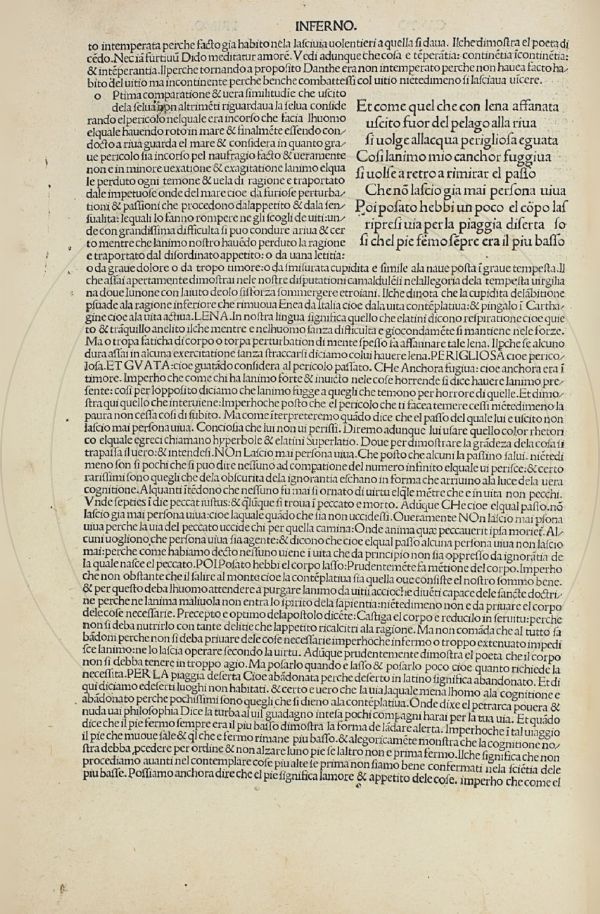 INFERNO.
to intemperata perche facto gia habito nela lasciuia uolentieri a quella si daua. Ilche dimostra el poeta di
cẽdo. Nec iã furtiuũ Dido meditatur amorẽ. Vedi adunque che cosa e tẽperãtia: continẽtia ĩcontinẽtia:
& intẽperantia. Ilperche tornando a proposito Danthe era non intemperato perche non hauea facto ha/
bito del uitio ma incontinente perche benche combattessi col uitio nietedimeno si lasciaua uĩcere.
o Ptima comparatione & uera similitudie che uscito
dela selua non altrimẽti riguardaua la selua conside
rando el pericolo nelquale era incorso che facia lhuomo
elquale hauendo roto in mare & finalmẽte essendo con/
docto a riua guarda el mare & considera in quanto gra/
ue pericolo sia incorso pel naufragio facto & ueramente
non e in minore uexatione & exagitatione lanimo elqua
le perduto ogni temone & uela di ragione e traportato
dale impetuose onde del mare cioe da furiose perturba/
tioni & passioni che procedono dalappetito & dala sen/
sualita: lequali lo fanno rompere ne gli scogli de uiti: un/
de con grandissima difficulta si puo condure ariua & cer
to mentre che lanimo nostro hauẽdo perduto la ragione
e traportato dal disordinato appetito: o da uana letitia:
Et come quel che con lena affanata
uscito fuor del pelago alla riua
si uolge allacqua perigliosa eguata
Cosi lanimo mio canchor fuggiua
si uolse a retro a rimirar el passo
Che nõ lascio gia mai persona uiua
Poi posato hebbi un poco el cõpo las
ripresi uia per la piaggia diserta so
si chel pie fẽmo sẽpre era il piu basso
o da graue dolore o da tropo timore: o da smisurata cupidita e simile ala naue posta ĩ graue tempesta. Il
che assai apertamente dimostrai nele nostre disputationi camaldulẽsi nelallegoria dela tempesta uirgilia
na doue Iunone con laiuto deolo si sforza sommergere etroiani. Ilche dinota che la cupidita delãbitione
psuade ala ragione inferiore che rimuoua Enea da Italia cioe dala uita contẽplatiua: & pingalo ĩ Cartha/
gine cioe ala uita actiua. LENA. In nostra lingua significa quello che elatini dicono respiratione cioe quie
to & trãquillo anelito ilche mentre e nelhuomo sanza difficulta e giocondamẽte si mantiene nele forze.
Ma o tropa faticha di corpo o torpa perturbation di mente spesso fa affannare tale lena. Ilpche se alcuno
dura assai in alcuna exercitatione sanza straccarsi diciamo colui hauere lena. PERIGLIOSA cioe perico/
losa. ET GVATA: cioe guatãdo considera al pericolo passato. CHe Anchora fugiua: cioe anchora era ĩ
timore. Imperho che come chi ha lanimo forte & inuicto nele cose horrende si dice hauere lanimo pre/
sente: cosi per lopposito diciamo che lanimo fugge a quegli che temono per horrore di quelle. Et dimo/
stra qui quello che interuiene: Imperhoche posto che el pericolo che ti facea temere cessi niẽtedimeno la
paura non cessa cosi di subito. Ma come ĩterpreteremo quãdo dice che el passo del quale lui e uscito non
lascio mai persona uiua. Conciosia che lui non ui perissi. Diremo adunque lui usare quello color rhetori
co elquale egreci chiamano hyperbole & elatini Superlatio. Doue per dimostrare la grãdeza dela cosa si
trapassa il uero: & intendesi. NOn Lascio mai persona uiua. Che posto che alcuni la passino salui. niẽtedi
meno son si pochi che si puo dire nessuno ad compatione del numero infinito elquale ui perisce: & certo
rarissimi sono quegli che dela obscurita dela ignorantia eschano in forma che arriuino ala luce dela uera
cognitione. Alquanti ĩtẽdono che nessuno fu mai si ornato di uirtu elqle mẽtre che e in uita non pecchi.
Vnde septies ĩ die peccat iustus: & qlũque si troua ĩ peccato e morto. Adũque CHe cioe elqual passo. nõ
lascio gia mai persona uiua: cioe laquale quãdo che sia non uccidessi. Oueramente NOn lascio mai psona
uiua perche la uia del peccato uccide chi per quella camina: Onde anima quæ peccauerit ipsa moriet. Al/
cuni uogliono che persona uiua sia agente: & dicono che cioe elqual passo alcuna persona uiua non lascio
mai: perche come habiamo decto nessuno uiene ĩ uita che da principio non sia oppresso da ignorãtia de
la quale nasce el peccato. POI Posato hebbi el corpo lasso: Prudentemẽte fa mẽtione del corpo. Imperho
che non obstante che il salire al monte cioe la contẽplatiua sia quella oue consiste el nostro sommo bene.
& per questo deba lhuomo attendere a purgare lanimo da uitii accioche diuẽti capace dele sancte doctri/
ne perche ne lanima maliuola non entra lo spirito dela sapientia: niẽtedimeno non e da priuare el corpo
dele cose necessarie. Precepto e optimo delapostolo dicẽte: Castiga el corpo e reducilo in seruitu: perche
non si deba nutrirlo con tante delitie che lappetito ricalcitri ala ragione. Ma non comãda che al tutto sa
bãdoni perche non si deba priuare dele cose necessarie imperhoche infermo o troppo extenuato impedi
sce lanimo: ne lo lascia operare secondo la uirtu. Adũque prudentemente dimostra el poeta che il corpo
non si debba tenere in troppo agio. Ma posarlo quando e lasso & posarlo poco cioe quanto richiede la
necessita. PER LA piaggia deserta Cioe abãdonata perche deserto in latino significa abandonato. Et di
qui diciamo edeserti luoghi non habitati. & certo e uero che la uia laquale mena lhomo ala cognitione e
abãdonato perche pochissimi sono quegli che si dieno ala contẽplatiua. Onde dixe el petrarca pouera &
nuda uai philosophia Dice la turba al uil guadagno intesa pochi compagni harai per la tua uia. Et quãdo
dice che il pie fermo sempre era il piu basso dimostra la forma de lãdare alerta. Imperhoche ĩ tal uiaggio
il pie che muoue sale & ql che e fermo rimane piu basso. & alegoricamẽte monstra che la cognitione no/
stra debba pcedere per ordine & non alzare luno pie se laltro non e prima fermo. Ilche significa che non
procediamo auanti nel contemplare cose piu alte se prima non siamo bene confermati nela sciẽtia dele
piu basse. Possiamo anchora dire che el pie significa lamore & appetito dele cose. imperho che come el